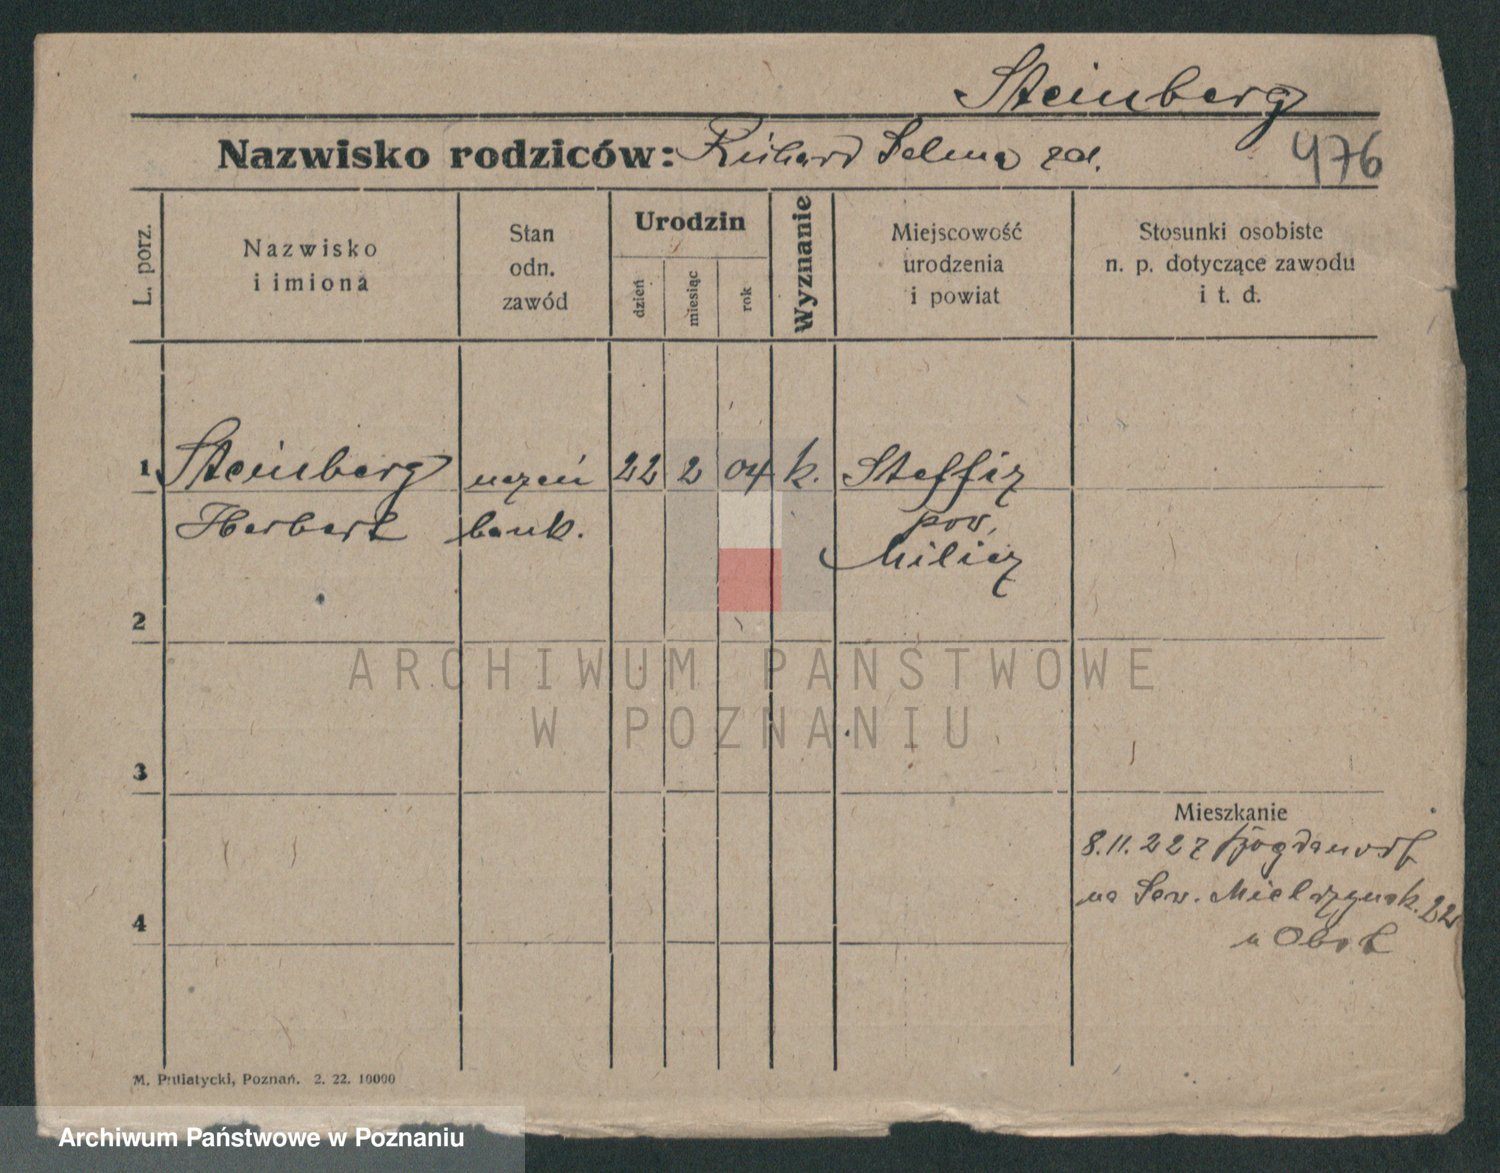 Steinberg
Nazwisko rodziców: Richard Selma
476
L. porz.
Nazwisko
i imiona
Stan
odn.
zawód
Urodzin
dzień
miesiąc
rok
Wyznanie
Miejscowość
urodzenia
i powiat
Stosunki osobiste
n. p. dotyczące zawodu
i t. d.
1 Steinberg uczeń 22 2 04 k. Steffiz
Herbert bank. pow.
Milicz
2
ARCHIWUM PAŃSTWOWE
W POZNANIU
3
Mieszkanie
8.11.22 z
na Sew. Mielżyńsk. 22
4
u
M. Putiatycki, Poznań. 2. 22. 10000
Archiwum Państwowe w Poznaniu